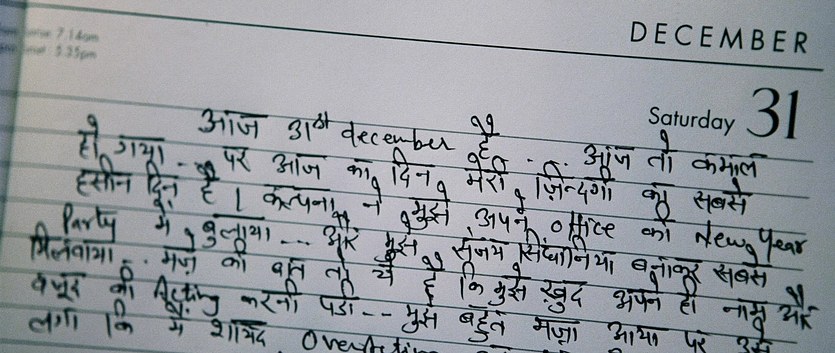 7:14am
5:35pm
DECEMBER
Saturday 31
आज 31st december है ... आज तो कमाल
हो गया ... पर आज का दिन मेरी ज़िन्दगी का सबसे
हसीन दिन है। कल्पना ने मुझे अपने office की New Year
Party में बुलाया ... और मुझे संजय सिंघानिया बनाकर सबसे
मिलवाया .. मज़े की बात तो ये है कि मुझे ख़ुद अपने ही नाम और
वजूद की Acting करनी पड़ी -- मुझे बहुत मज़ा आया पर उसे
लगा कि मैं शायद